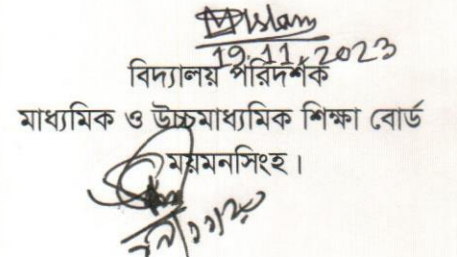 MIslam
19.11.2023
বিদ্যালয় পরিদর্শক
মাধ্যমিক ও উচ্চমাধ্যমিক শিক্ষা বোর্ড
ময়মনসিংহ।